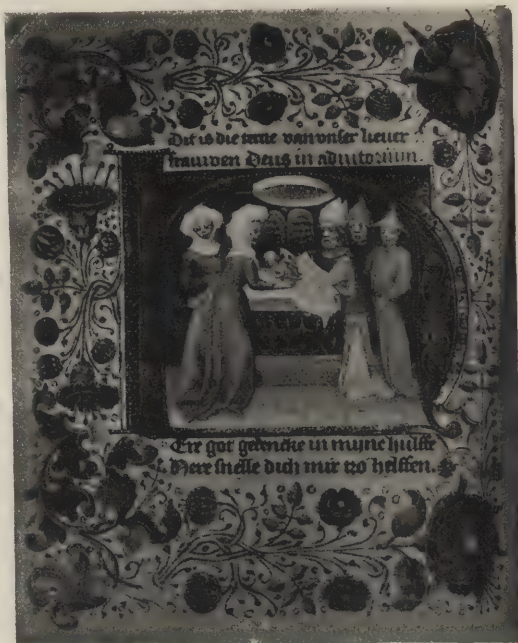 Dit is die tertie van vnser lieuer
frauwen Deus in adiutorium.
Ere got gedencke in myne hulffe
Here snelle dich mir tzo helffen.